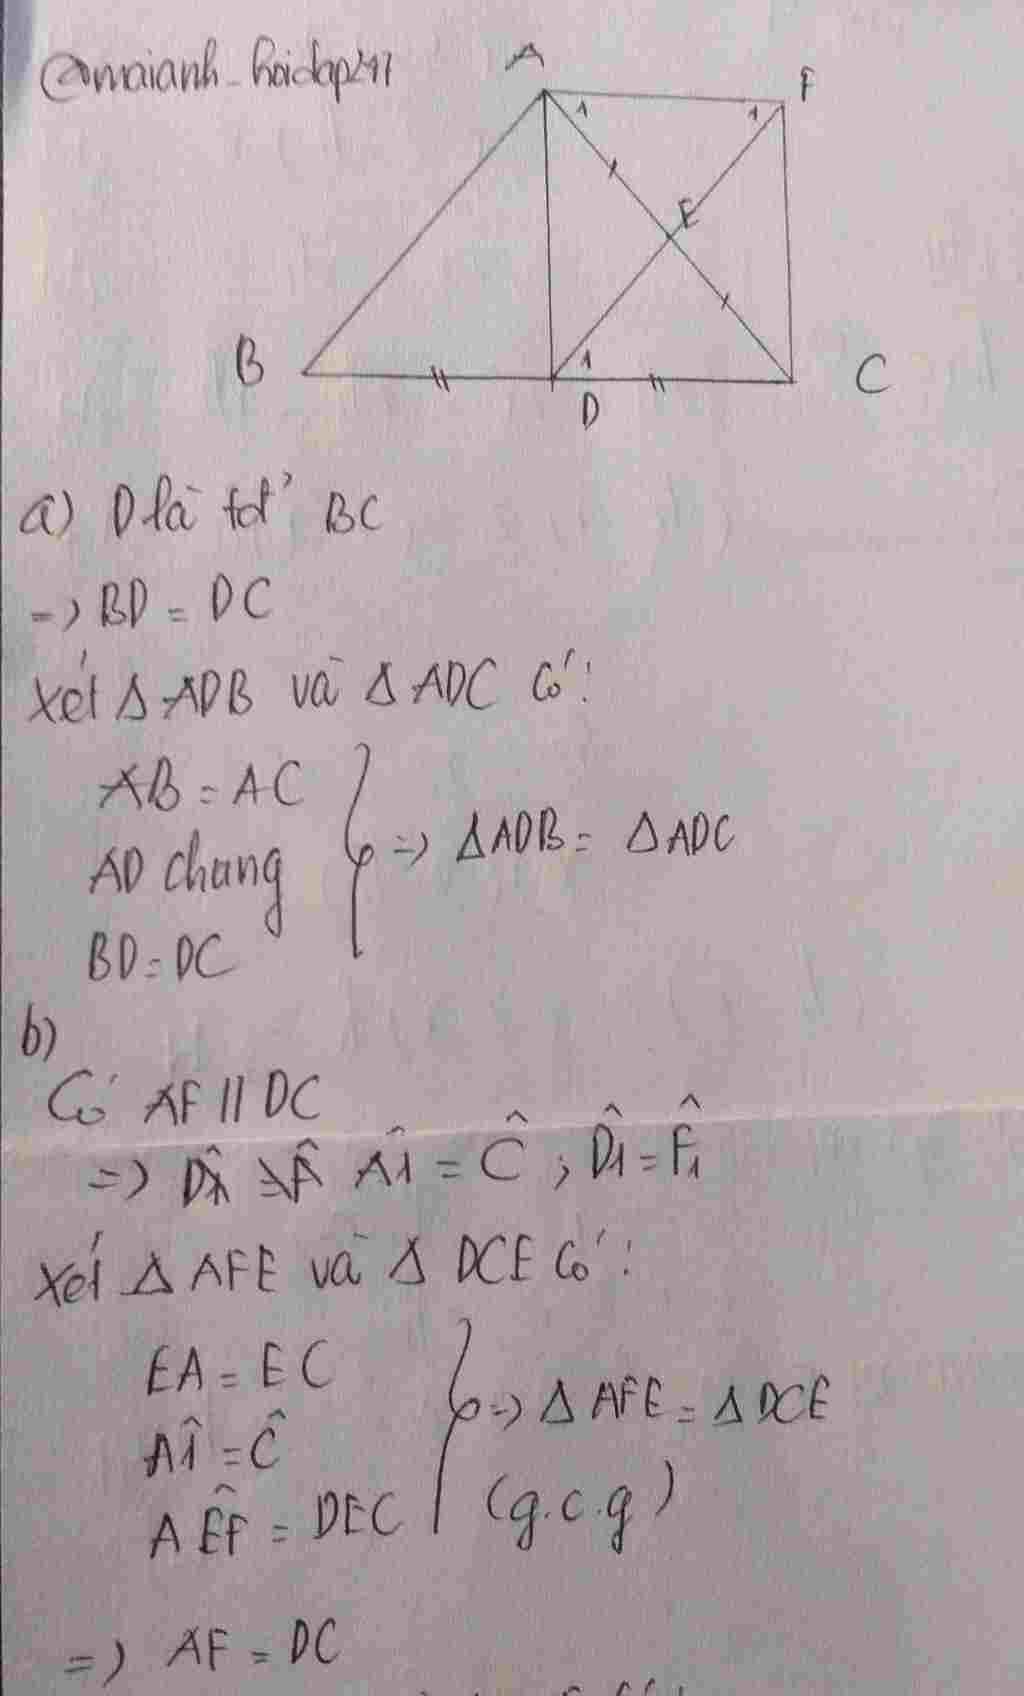 @maianh_hoidap247
A
F
1
1
E
B
1
C
D
a) D là tđ' BC
=> BD = DC
Xét Δ ADB và Δ ADC có:
AB = AC
AD chung => ΔADB = ΔADC
BD = DC
b)
Có AF // DC
=> Â1 = Ĉ ; D̂1 = F̂1
Xét Δ AFE và Δ DCE có:
EA = EC
Â1 = Ĉ => Δ AFE = Δ DCE
AÊF = DEC (g.c.g)
=> AF = DC